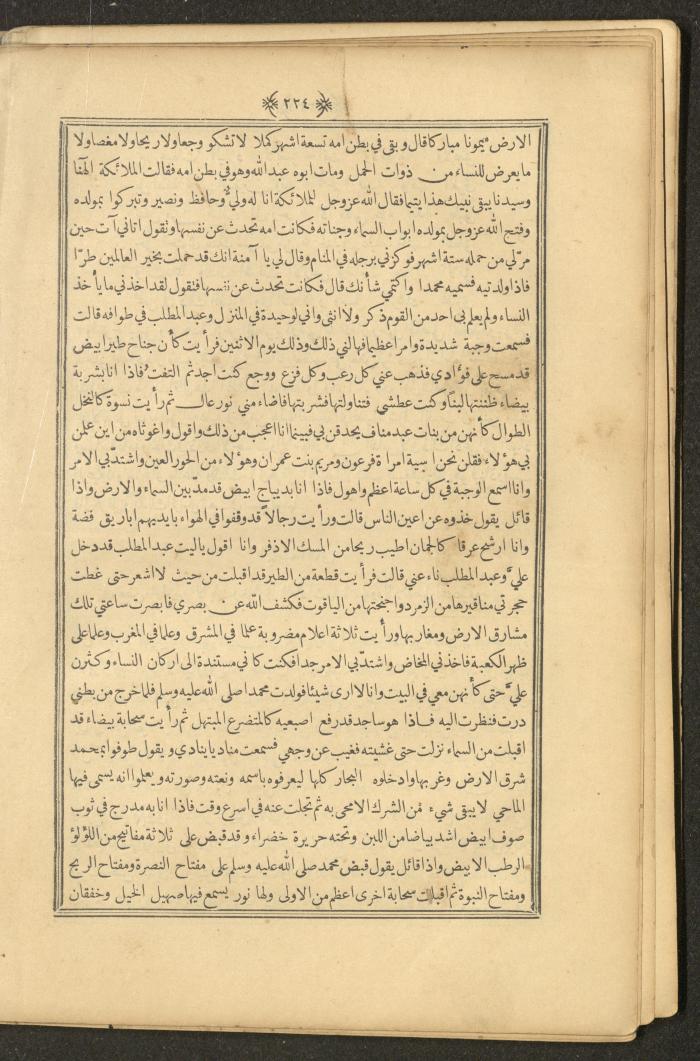 ٢٢٤
الارض ميمونا مباركا قال وبقي في بطن امه تسعة اشهر كملا لا تشكو وجعا ولا ريحا ولا مغصا ولا
ما يعرض للنساء من ذوات الحمل ومات ابوه عبد الله وهو في بطن امه فقالت الملائكة الهنا
وسيدنا يبقى نبيك هذا يتيما فقال الله عز وجل للملائكة انا له وليٌّ وحافظ ونصير وتبركوا بمولده
وفتح الله عز وجل بمولده ابواب السماء وجناته فكانت امه تحدث عن نفسها وتقول اتاني آت حين
مر لي من حمله ستة اشهر فوكزني برجله في المنام وقال لي يا آمنة انك قد حملت بخير العالمين طرّا
فاذا ولدتيه فسميه محمدا واكتمي شأنك قال فكانت تحدث عن نفسها فتقول لقد اخذني ما يأخذ
النساء ولم يعلم بي احد من القوم ذكر ولا انثى واني لوحيدة في المنزل وعبد المطلب في طوافه قالت
فسمعت وجبة شديدة وامرا عظيما فهالني ذلك وذلك يوم الاثنين فرأيت كأن جناح طير ابيض
قد مسح على فؤادي فذهب عني كل رعب وكل فزع ووجع كنت اجد ثم التفت فاذا انا بشربة
بيضاء ظننتها لبنا وكنت عطشى فتناولتها فشربتها فاضاء مني نور عال ثم رأيت نسوة كالنخل
الطوال كأنهن من بنات عبد مناف يحدقن بي فبينما انا اعجب من ذلك واقول واغوثاه من اين علمن
بي هؤلاء فقلن نحن آسية امراة فرعون ومريم بنت عمران وهؤلاء من الحور العين واشتد بي الامر
وانا اسمع الوجبة في كل ساعة اعظم واهول فاذا انا بديباج ابيض قد مدّ بين السماء والارض واذا
قائل يقول خذوه عن اعين الناس قالت ورأيت رجالاً قد وقفوا في الهواء بايديهم اباريق فضة
وانا ارشح عرقا كالجمان اطيب ريحا من المسك الاذفر وانا اقول ياليت عبد المطلب قد دخل
عليَّ وعبد المطلب ناء عني قالت فرأيت قطعة من الطير قد اقبلت من حيث لا اشعر حتى غطت
حجرتي مناقيرها من الزمرد واجنحتها من الياقوت فكشف الله عن بصري فابصرت ساعتي تلك
مشارق الارض ومغاربها ورأيت ثلاثة اعلام مضروبة علما في المشرق وعلما في المغرب وعلما على
ظهر الكعبة فاخذني المخاض واشتد بي الامر جدا فكنت كاني مستندة الى اركان النساء وكثرن
عليَّ حتى كأنهن معي في البيت وانا لا ارى شيئا فولدت محمدا صلى الله عليه وسلم فلما خرج من بطني
درت فنظرت اليه فاذا هو ساجد قد رفع اصبعيه كالمتضرع المبتهل ثم رأيت سحابة بيضاء قد
اقبلت من السماء نزلت حتى غشيته فغيب عن وجهي فسمعت مناديا ينادي ويقول طوفوا بمحمد
شرق الارض وغربها وادخلوه البحار كلها ليعرفوه باسمه ونعته وصورته ويعلموا انه يسمى فيها
الماحي لا يبقى شيء من الشرك الا محي به ثم تجلت عنه في اسرع وقت فاذا انا به مدرج في ثوب
صوف ابيض اشد بياضا من اللبن وتحته حريرة خضراء وقد قبض على ثلاثة مفاتيح من اللؤلؤ
الرطب الابيض واذا قائل يقول قبض محمد صلى الله عليه وسلم على مفتاح النصرة ومفتاح الريح
ومفتاح النبوة ثم اقبلت سحابة اخرى اعظم من الاولى ولها نور يسمع فيها صهيل الخيل وخفقان